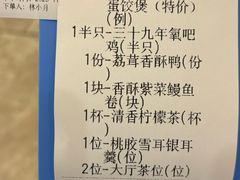 下单人: 林小月
蛋饺煲 (特价)
(例)
1半只-三十九年氧吧
鸡(半只)
1份-荔茸香酥鸭(份
)
1块-香酥紫菜鳗鱼
卷(块)
1杯-清香柠檬茶(杯
)
1位-桃胶雪耳银耳
羹(位)
2位-大厅茶位(位)